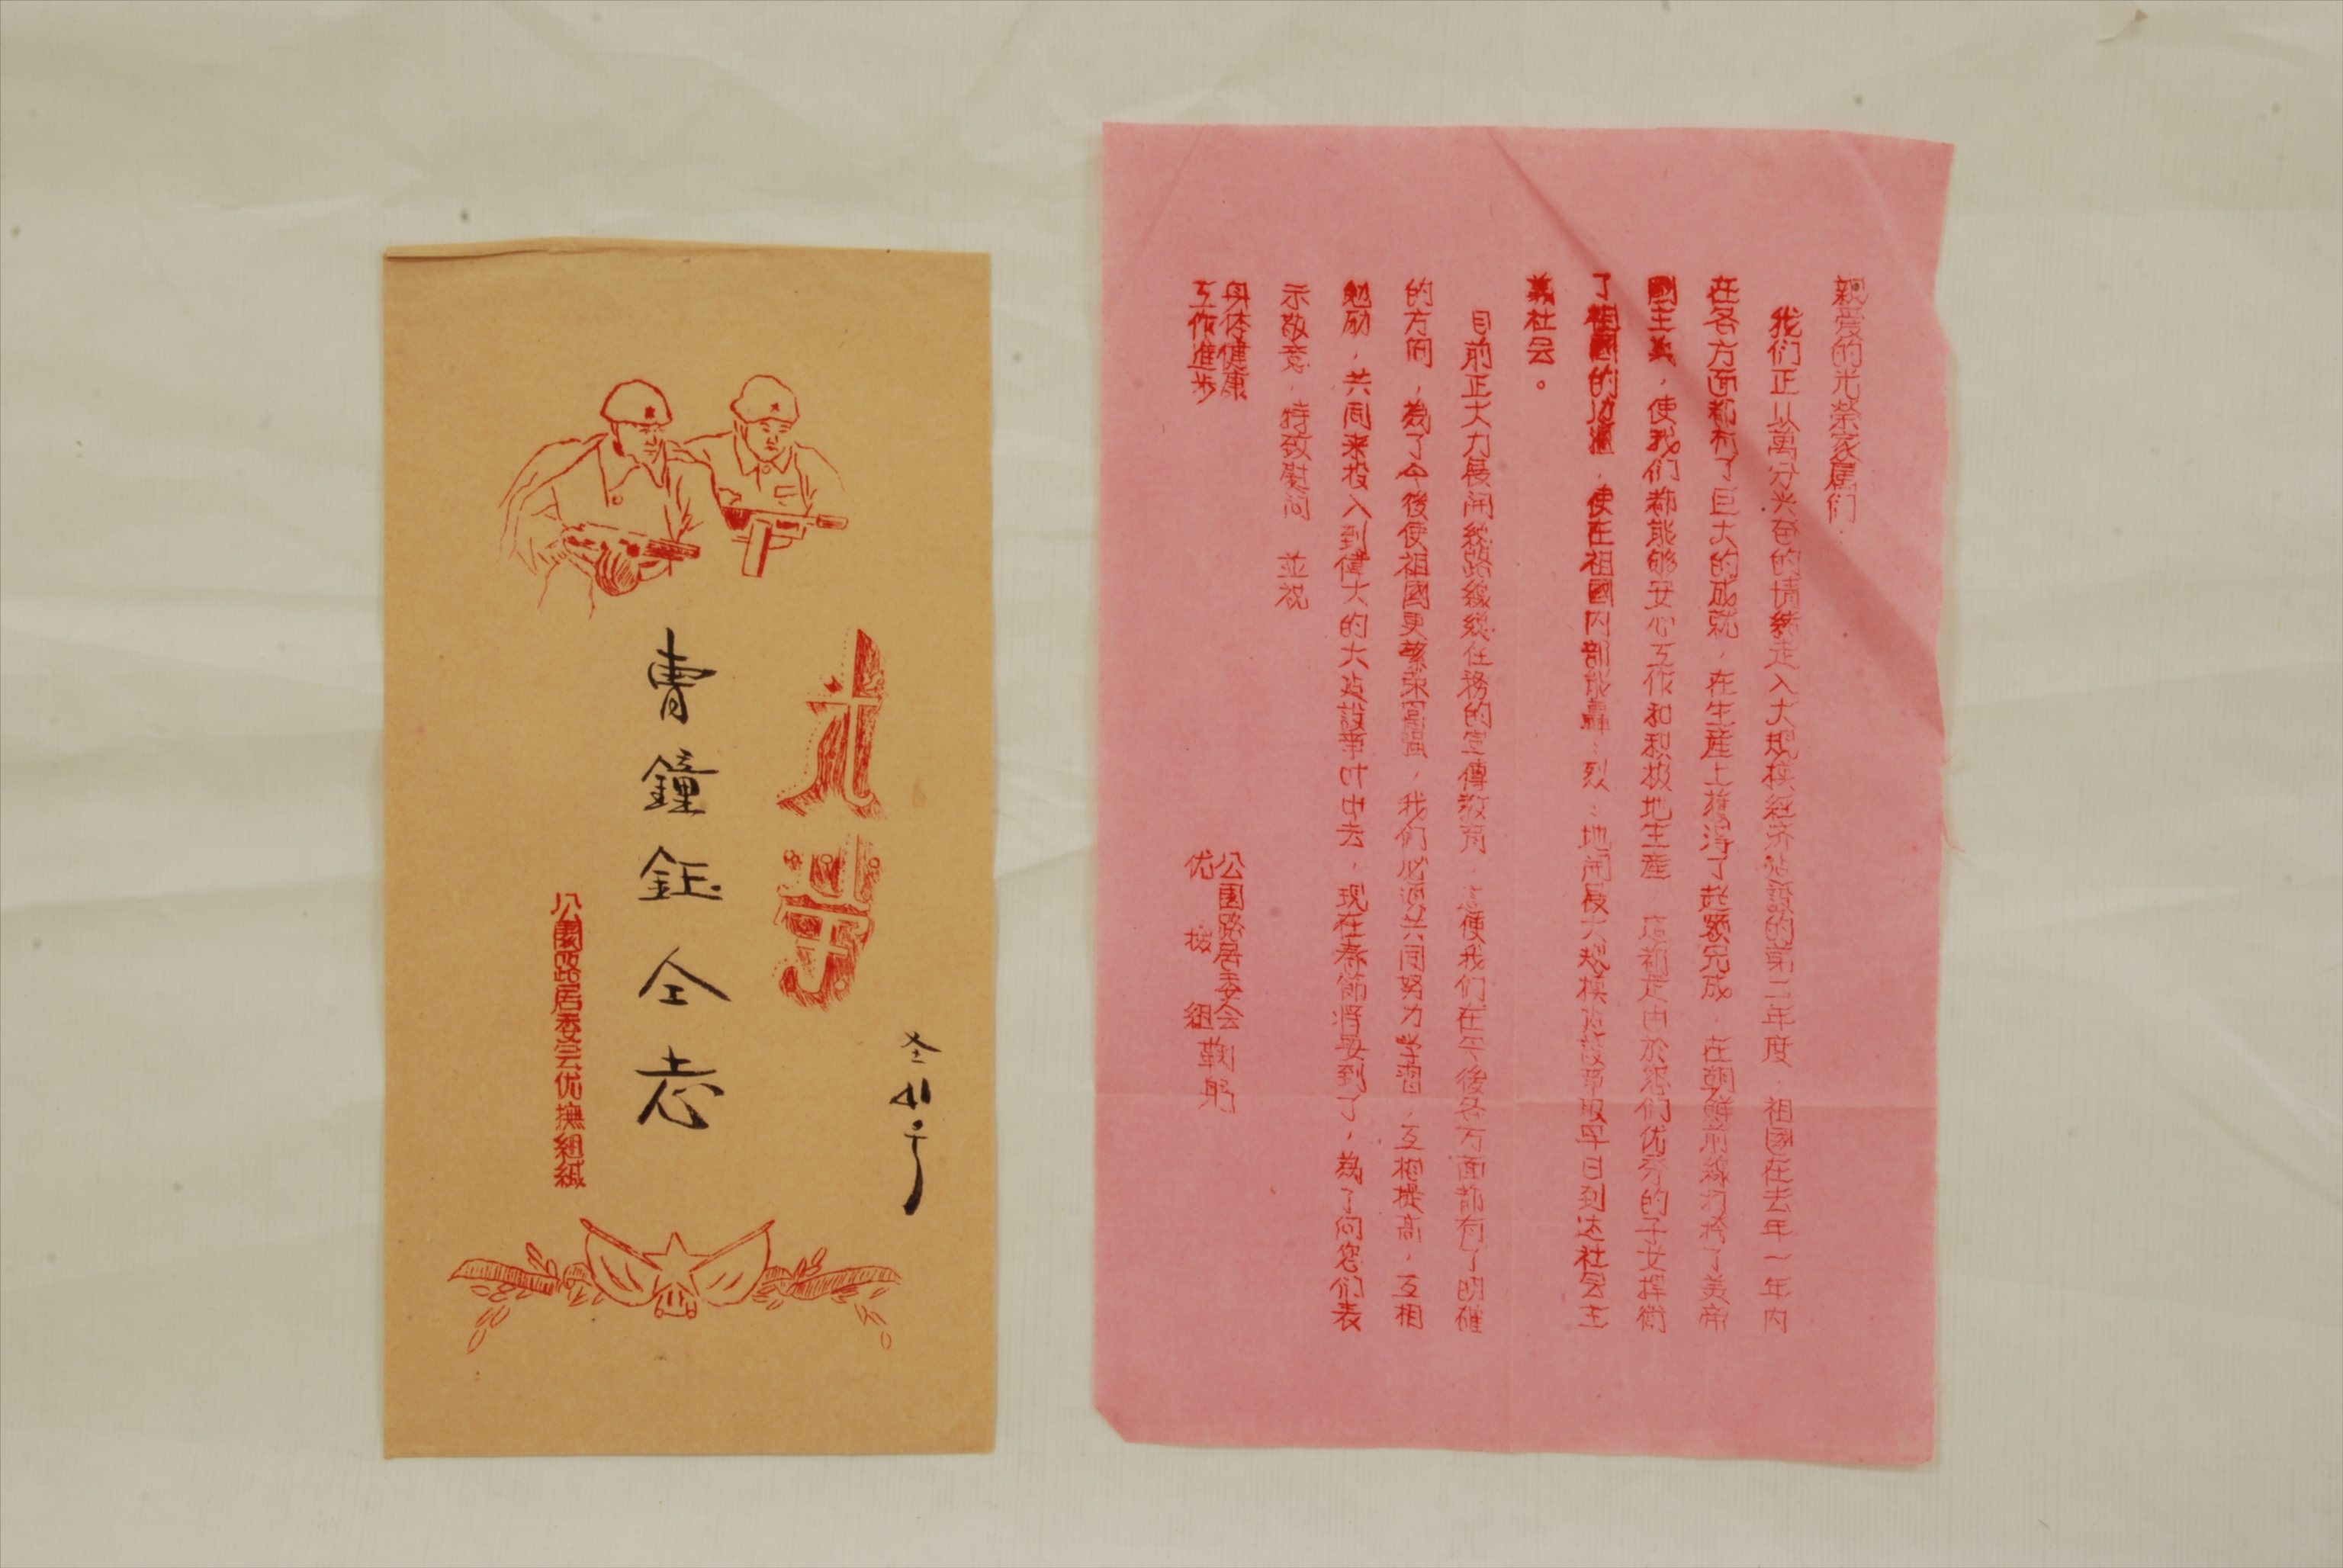 親爱的光榮家屬们
我们正以萬分兴奋的情緒走入大規模經济建設的第二年度．祖國在去年一年内
在各方面都有了巨大的成就，在生產上獲得了超額完成，在朝鮮前綫打垮了美帝
國主義，使我们都能够安心工作和积极地生產．這都是由於您们优秀的子女捍衛
了祖國的边疆，使在祖國内部能轟〻烈〻地開展大規模建設爭取早日到达社会主
義社会。
目前正大力展開總路綫總任務的宣傳教育，這使我们在今後各方面都有了明確
的方向，為了今後使祖國更繁荣富强，我们必須共同努力学習，互相提高，互相
勉励，共同来投入到偉大的大建設事叶中去，现在春節將要到了，為了向您们表
示敬意，特致慰问 並祝
身体健康
工作進步
公園路居委会
优 撫 組 鞠躬
曹鐘鉦仝志
公園路居委会优撫組緘